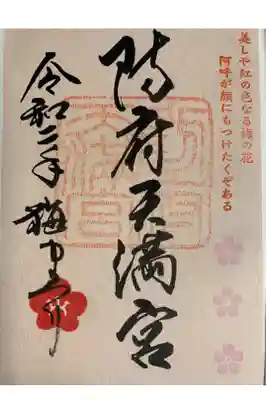 美しや紅の色なる梅の花
阿呼が顔にもつけたくぞある
防府天満宮
令和二年 梅中